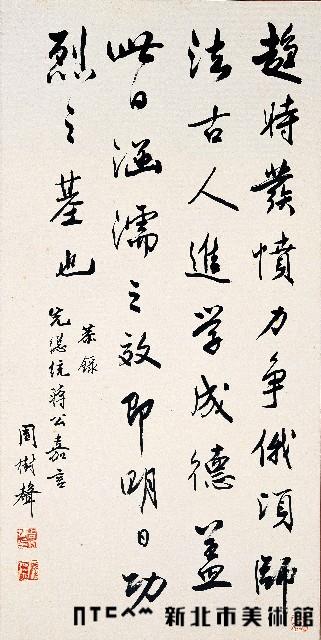 趁時發憤力爭俄頃師
法古人進学成德蓋
此日涵濡之效即明日功
烈之基也
恭錄
先總统蔣公嘉言
周樹聲
NTCAM 新北市美術館